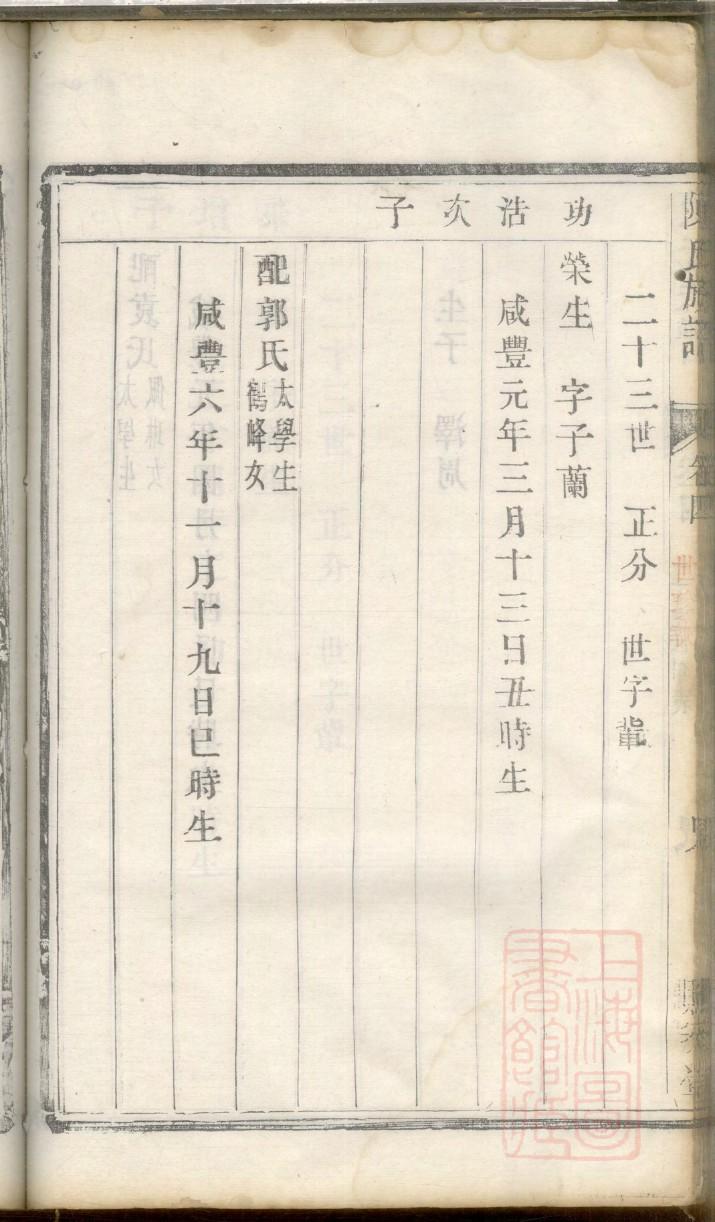 陳氏族譜
卷四
二十三世 正分 世字輩
功浩次子
榮生 字子蘭
咸豐元年三月十三日丑時生
配郭氏太學生鶴峰女
咸豐六年十一月十九日巳時生
上海圖書館藏